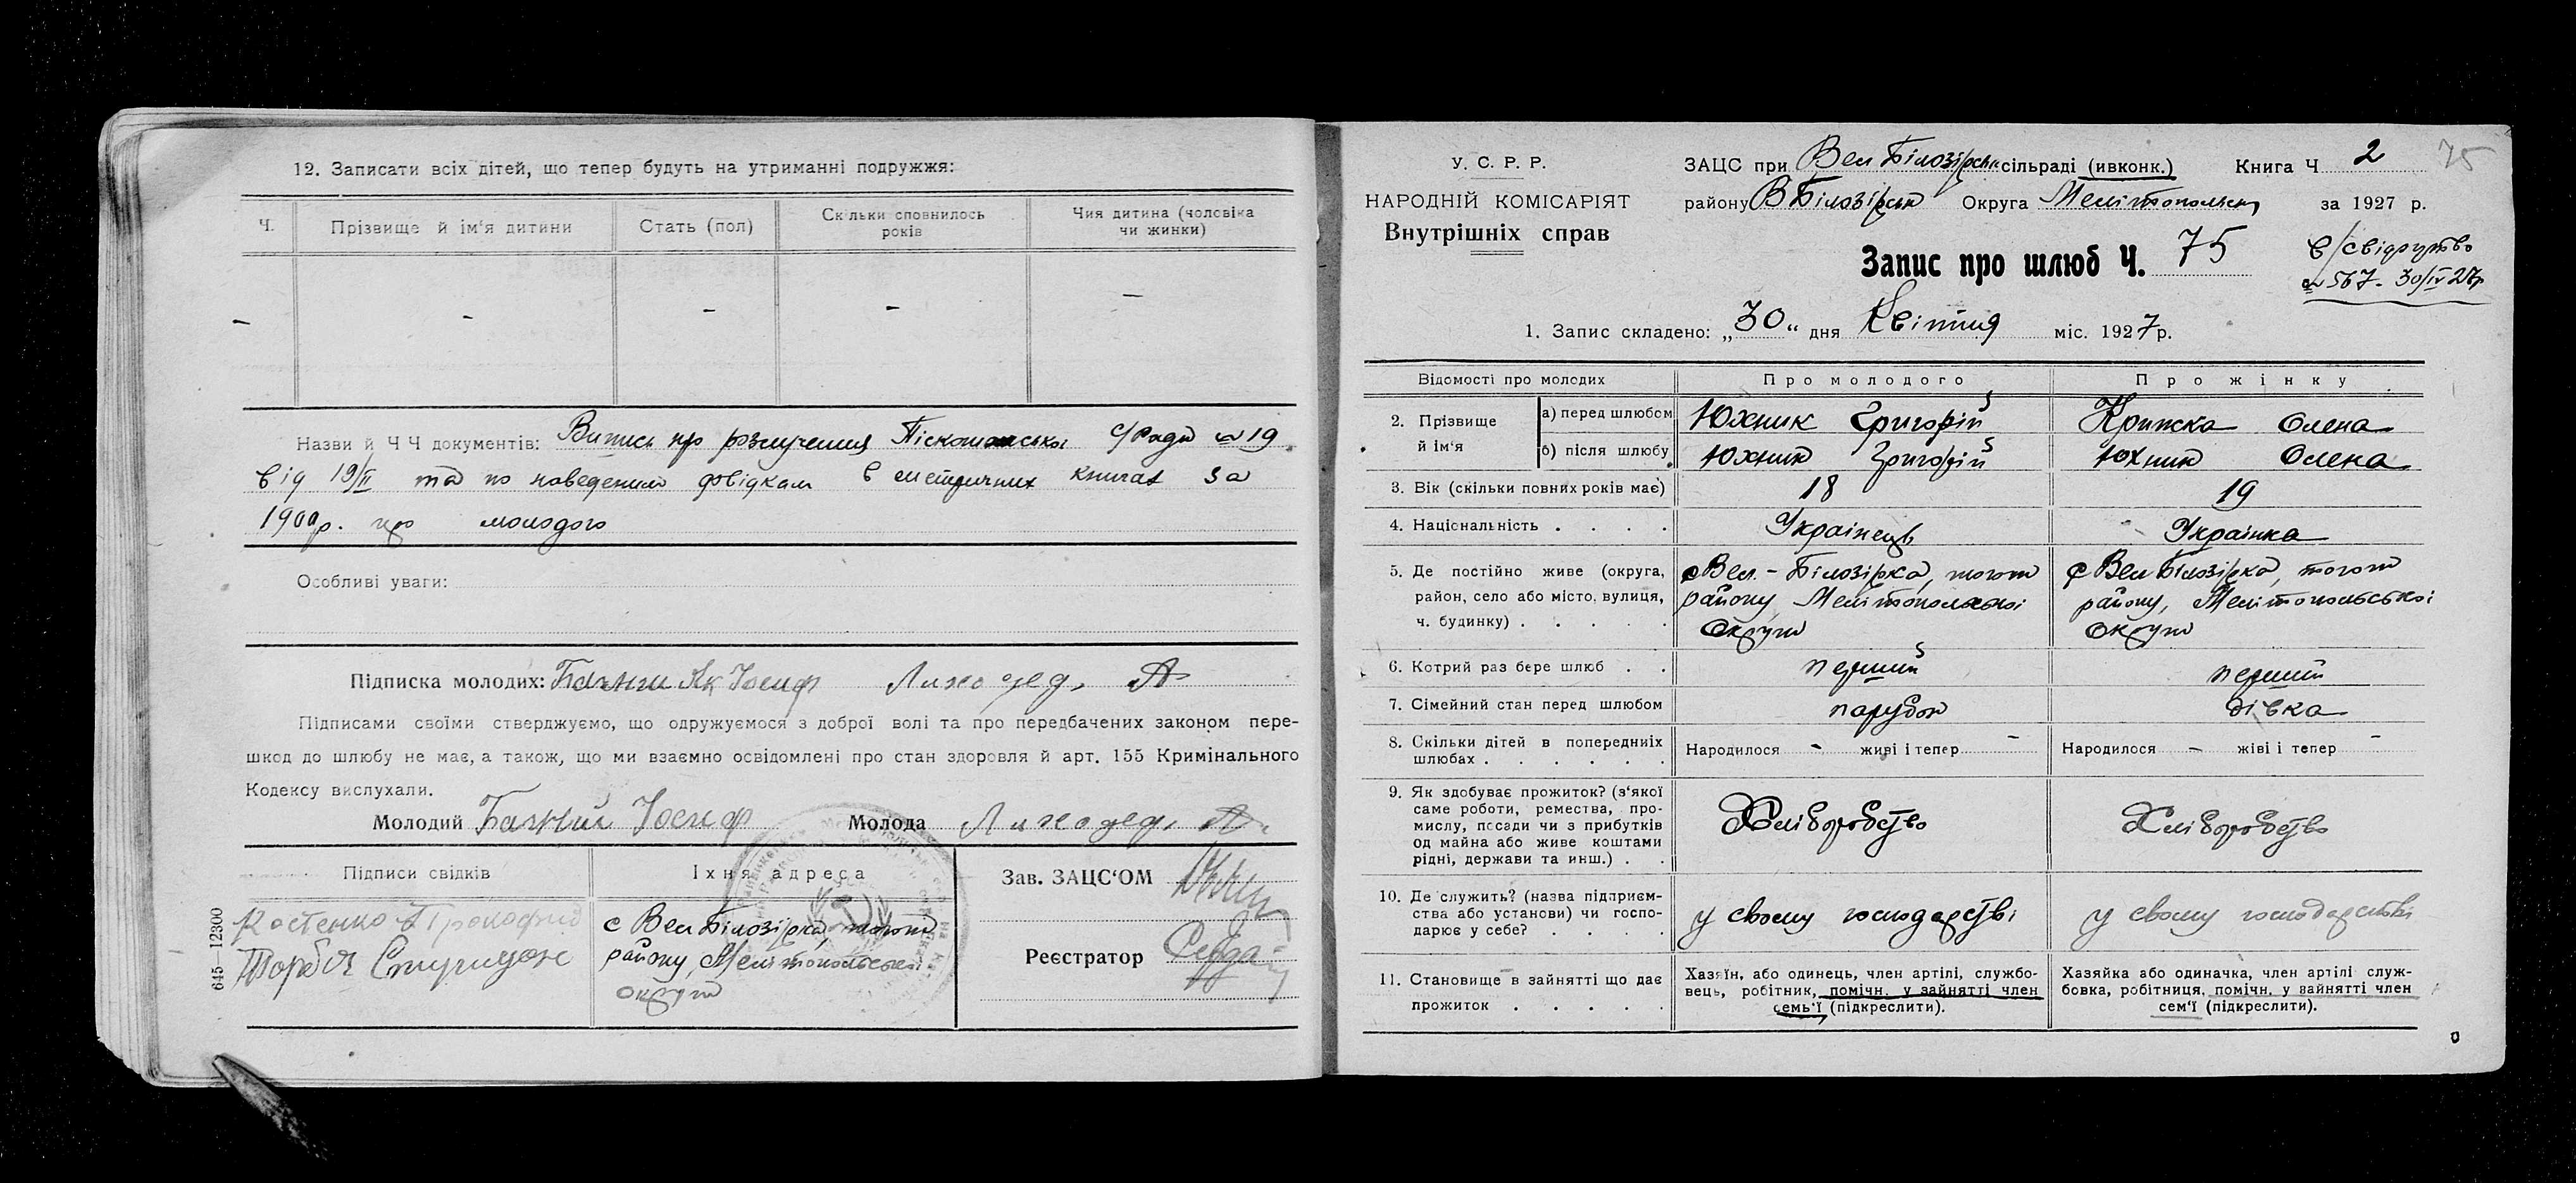 12. Записати всіх дітей, що тепер будуть на утриманні подружжя:
Ч.
Прізвище й ім'я дитини
Стать (пол)
Скільки сповнилось
років
Чия дитина (чоловіка
чи жинки)
– – – – –
Назви й Ч Ч документів: Випись про розлучення С/Ради № 19
від 19/II та по наведеним довідкам в метричних книгах за
р. про молодого
Особливі уваги:
Підписка молодих: Иосиф Лиходед. А
Підписами своїми стверджуємо, що одружуємося з доброї волі та про передбачених законом пере-
шкод до шлюбу не має, а також, що ми взаємно освідомлені про стан здоровля й арт. 155 Кримінального
Кодексу вислухали.
Молодий Иосиф Молода Лиходед. А.
Підписи свідків
Їхня адреса
Костенко Прокофий
Торбия Спиридон
с Вел Білозірка, того ж
району, Мелітопольської
округи
Зав. ЗАЦС'ОМ
Реєстратор
645—12300
У. С. Р. Р.
НАРОДНІЙ КОМІСАРІЯТ
Внутрішніх справ
ЗАЦС при Вел Білозірськ сільраді (ивконк.) Книга Ч 2
75
району В Білозірськ Округа Мелітопольськ за 1927 р.
Запис про шлюб Ч. 75
в/свідоцтво
№ 567. 30/IV 27р
1. Запис складено: „30“ дня Квітня міс. 1927 р.
Відомості про молодих
Про молодого
Про жінку
2. Прізвище
й ім'я
а) перед шлюбом Юхник Григорій Крипска Олена
б) після шлюбу Юхник Григорій Юхник Олена
3. Вік (скільки повних років має) 18 19
4. Національність . . . . Українець Українка
5. Де постійно живе (округа,
район, село або місто, вулиця,
ч. будинку) . . . . .
с Вел.-Білозірка, того ж
району Мелітопольської
Округи
с Вел Білозірка, того ж
району, Мелітопольської
Округи
6. Котрий раз бере шлюб . . перший перший
7. Сімейний стан перед шлюбом парубок дівка
8. Скільки дітей в попередніх
шлюбах . . . . . .
Народилося – живі і тепер –
Народилося – жіві і тепер –
9. Як здобуває прожиток? (з'якої
саме роботи, ремества, про-
мислу, посади чи з прибутків
од майна або живе коштами
рідні, держави та инш.) . .
Хліборобство
Хліборобство
10. Де служить? (назва підприєм-
ства або установи) чи госпо-
дарює у себе? . . . .
у своему господарстві
у своему господарстві
11. Становище в зайнятті що дає
прожиток . . . . .
Хазяїн, або одинець, член артілі, службо-
вець, робітник, помічн. у зайнятті член
семь'ї (підкреслити).
Хазяйка або одиначка, член артілі служ-
бовка, робітниця, помічн. у зайнятті член
сем'ї (підкреслити).